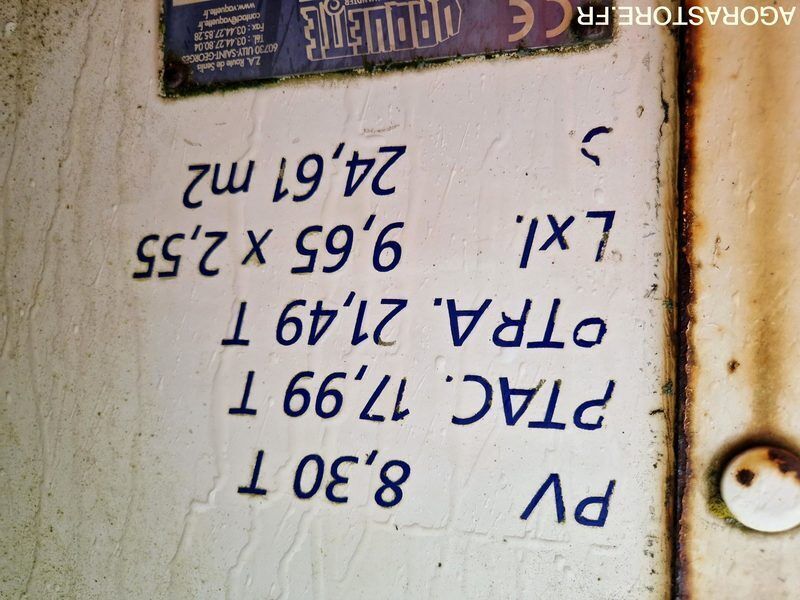 PV 8,30 T
PTAC. 17,99 T
PTRA. 21,49 T
Lxl. 9,65 x 2,55
24,61 m2
CE VAQUETTE
Z.A. Route de Senlis
60730 ULLY-SAINT-GEORGES
Tél. : 03.44.27.80.04
Fax : 03.44.27.85.28
contact@vaquette.fr
www.vaquette.fr
AGORASTORE.FR